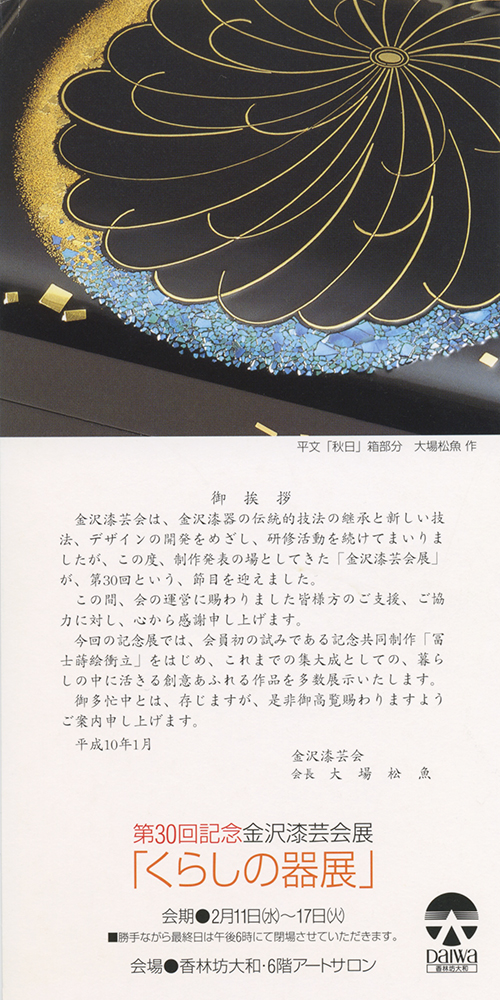 平文「秋日」箱部分　大場松魚 作
御　挨　拶
金沢漆芸会は、金沢漆器の伝統的技法の継承と新しい技
法、デザインの開発をめざし、研修活動を続けてまいりま
したが、この度、制作発表の場としてきた「金沢漆芸会展」
が、第30回という、節目を迎えました。
この間、会の運営に賜わりました皆様方のご支援、ご協
力に対し、心から感謝申し上げます。
今回の記念展では、会員初の試みである記念共同制作「冨
士蒔絵衝立」をはじめ、これまでの集大成としての、暮ら
しの中に活きる創意あふれる作品を多数展示いたします。
御多忙中とは、存じますが、是非御高覧賜わりますよう
ご案内申し上げます。
平成10年1月
金沢漆芸会
会長　大　場　松　魚
第30回記念金沢漆芸会展
「くらしの器展」
会期●2月11日(水)〜17日(火)
■勝手ながら最終日は午後6時にて閉場させていただきます。
会場●香林坊大和・6階アートサロン
DAIWA
香林坊大和